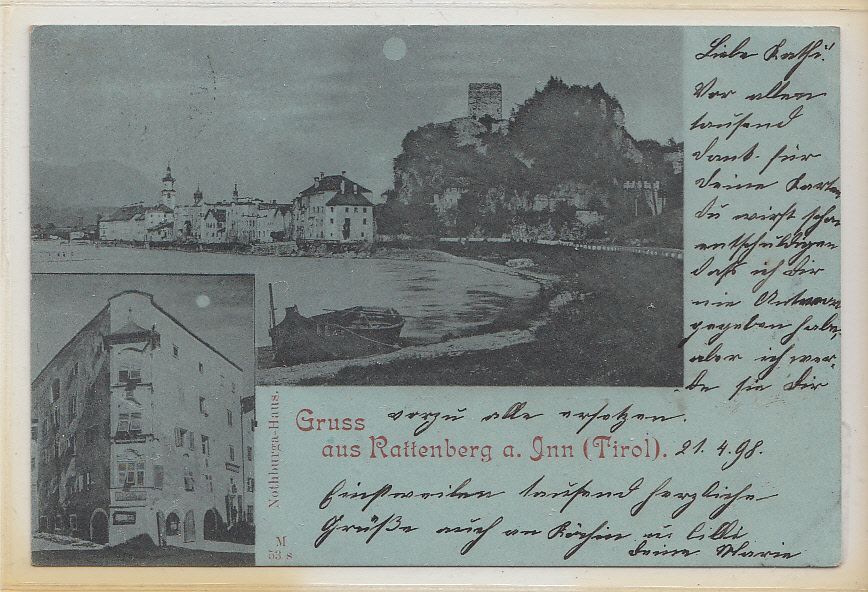 Liebe Kathi!
Vor allem
tausend
Dank für
deine Karten
du wirst schon
entschuldigen
daß ich dir
nie Antwort
gegeben habe,
aber ich wer-
de sie dir
vorzu alle ersetzen.
Gruss
aus Rattenberg a. Inn (Tirol). 21.4.98.
Einstweilen tausend herzliche
Grüße auch an Köchin u. Cilli
deine Marie
Nothburga-Haus.
M
53 s